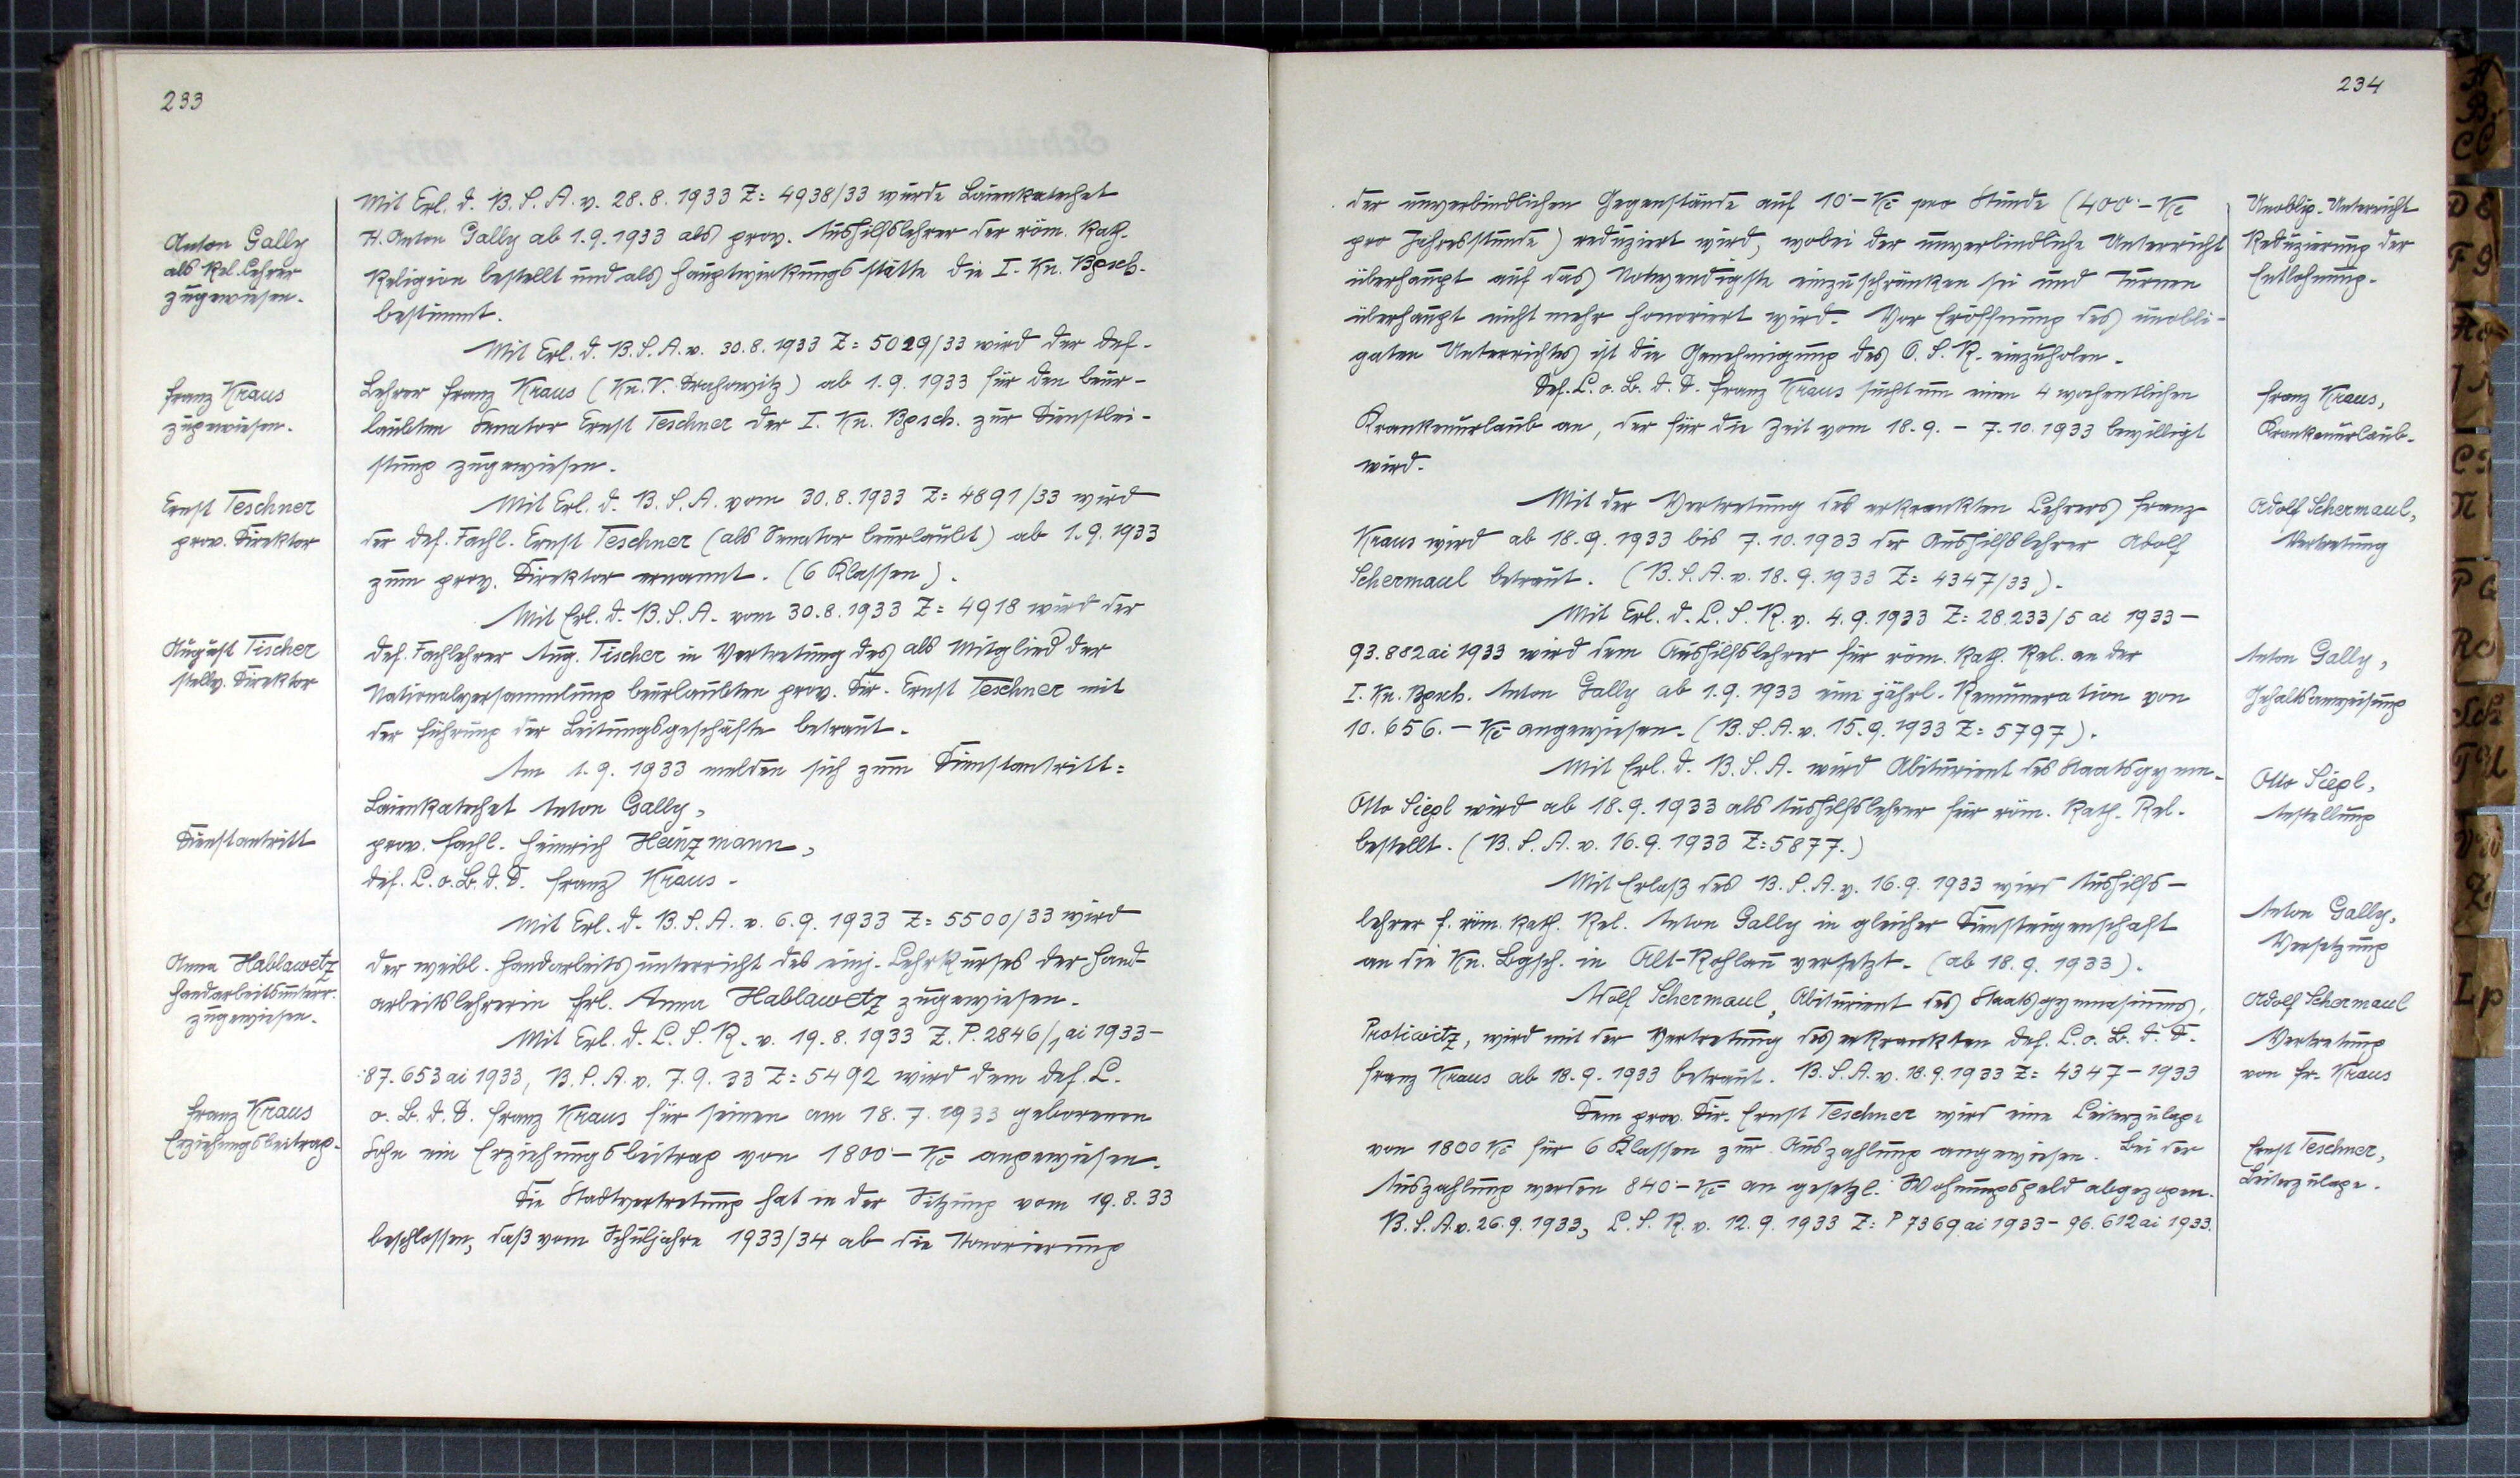 233
Mit Erl. d. B. S. A. v. 28. 8. 1933 Z: 4938/33 wurde Laienkatechet
H. Anton Gally ab 1. 9. 1933 als prov. Aushilfslehrer der röm. kath.
Religion bestellt und als Hauptwirkungsstätte die I. Kn. Bgsch.
bestimmt.
Anton Gally
als Rel. Lehrer
zugewiesen.
Mit Erl. d. B. S. A. v. 30. 8. 1933 Z: 5029/33 wird der def.
Lehrer Franz Kraus (Kn. V. Drahowitz) ab 1. 9. 1933 für den beur-
laubten Senator Ernst Teschner der I. Kn. Bgsch. zur Dienstlei-
stung zugewiesen.
Franz Kraus
zugewiesen.
Mit Erl. d. B. S. A. vom 30. 8. 1933 Z: 4891/33 wird
der def. Fachl. Ernst Teschner (als Senator beurlaubt) ab 1. 9. 1933
zum prov. Direktor ernannt. (6 Klassen).
Ernst Teschner
prov. Direktor
Mit Erl. d. B. S. A. vom 30. 8. 1933 Z: 4918 wird der
def. Fachlehrer Aug. Tischer in Vertretung des als Mitglied der
Nationalversammlung beurlaubten prov. Dir. Ernst Teschner mit
der Führung der Leitungsgeschäfte betraut.
August Tischer
stellv. Direktor
Am 1. 9. 1933 melden sich zum Dienstantritt:
Laienkatechet Anton Gally,
prov. Fachl. Heinrich Heinzmann,
def. L. o. B. d. D. Franz Kraus.
Dienstantritt
Mit Erl. d. B. S. A. v. 6. 9. 1933 Z: 5500/33 wird
der weibl. Handarbeitsunterricht des einj. Lehrkurses der Hand-
arbeitslehrerin Frl. Anna Hablawetz zugewiesen.
Anna Hablawetz
Handarbeitsunterr.
zugewiesen.
Mit Erl. d. L. S. R. v. 19. 8. 1933 Z. P. 2846/1 ai 1933 -
87. 653 ai 1933, B. S. A. v. 7. 9. 33 Z: 5492 wird dem def. L.
o. B. d. D. Franz Kraus für seinen am 18. 7. 1933 geborenen
Sohn ein Erziehungsbeitrag von 1800·- Kč angewiesen.
Franz Kraus
Erziehungsbeitrag.
Die Stadtvertretung hat in der Sitzung vom 19. 8. 33
beschlossen, daß vom Schuljahre 1933/34 ab die Honorierung
234
der unverbindlichen Gegenstände auf 10·- Kč pro Stunde (400·- Kč
pro Jahresstunde) reduziert wird, wobei der unverbindliche Unterricht
überhaupt auf das Notwendigste einzuschränken sei und Turnen
überhaupt nicht mehr honoriert wird. Vor Eröffnung des unobli-
gaten Unterrichts ist die Genehmigung des O. S. R. einzuholen.
Unoblig. Unterricht
Reduzierung der
Entlohnung.
Def. L. o. B. d. D. Franz Kraus sucht um einen 4 wochentlichen
Krankenurlaub an, der für die Zeit vom 18. 9. - 7. 10. 1933 bewilligt
wird.
Franz Kraus,
Krankenurlaub.
Mit der Vertretung des erkrankten Lehrers Franz
Kraus wird ab 18. 9. 1933 bis 7. 10. 1933 der Aushilfslehrer Adolf
Schermaul betraut. (B. S. A. v. 18. 9. 1933 Z: 4347/33).
Adolf Schermaul,
Vertretung
Mit Erl. d. L. S. R. v. 4. 9. 1933 Z: 28.233/5 ai 1933 -
93.882 ai 1933 wird dem Aushilfslehrer für röm. kath. Rel. an der
I. Kn. Bgsch. Anton Gally ab 1. 9. 1933 eine jährl. Remuneration von
10. 656. - Kč angewiesen. (B. S. A. v. 15. 9. 1933 Z: 5797).
Anton Gally,
Gehaltsanweisung
Mit Erl. d. B. S. A. wird Abiturient des Staatsgymn.
Otto Siegl wird ab 18. 9. 1933 als Aushilfslehrer für röm. kath. Rel.
bestellt. (B. S. A. v. 16. 9. 1933 Z: 5877.)
Otto Siegl,
Anstellung
Mit Erlaß des B. S. A. v. 16. 9. 1933 wird Aushilfs-
lehrer f. röm. kath. Rel. Anton Gally in gleicher Diensteigenschaft
an die Kn. Bgsch. in Alt-Rohlau versetzt. (ab 18. 9. 1933).
Anton Gally,
Versetzung
Adolf Schermaul, Abiturient des Staatsgymnasiums,
wird mit der Vertretung des erkrankten def. L. o. B. d. D.
Franz Kraus ab 18. 9. 1933 betraut. B. S. A. v. 18. 9. 1933 Z: 4347 - 1933
Adolf Schermaul
Vertretung
von Fr. Kraus
Dem prov. Dir. Ernst Teschner wird eine Leiterzulage
von 1800 Kč für 6 Klassen zur Auszahlung angewiesen. Bei der
Auszahlung werden 840·- Kč an gesetzl. Wohnungsgeld abgezogen.
B. S. A. v. 26. 9. 1933, L. S. R. v. 12. 9. 1933 Z: P 7369 ai 1933 - 96. 612 ai 1933.
Ernst Teschner,
Leiterzulage.